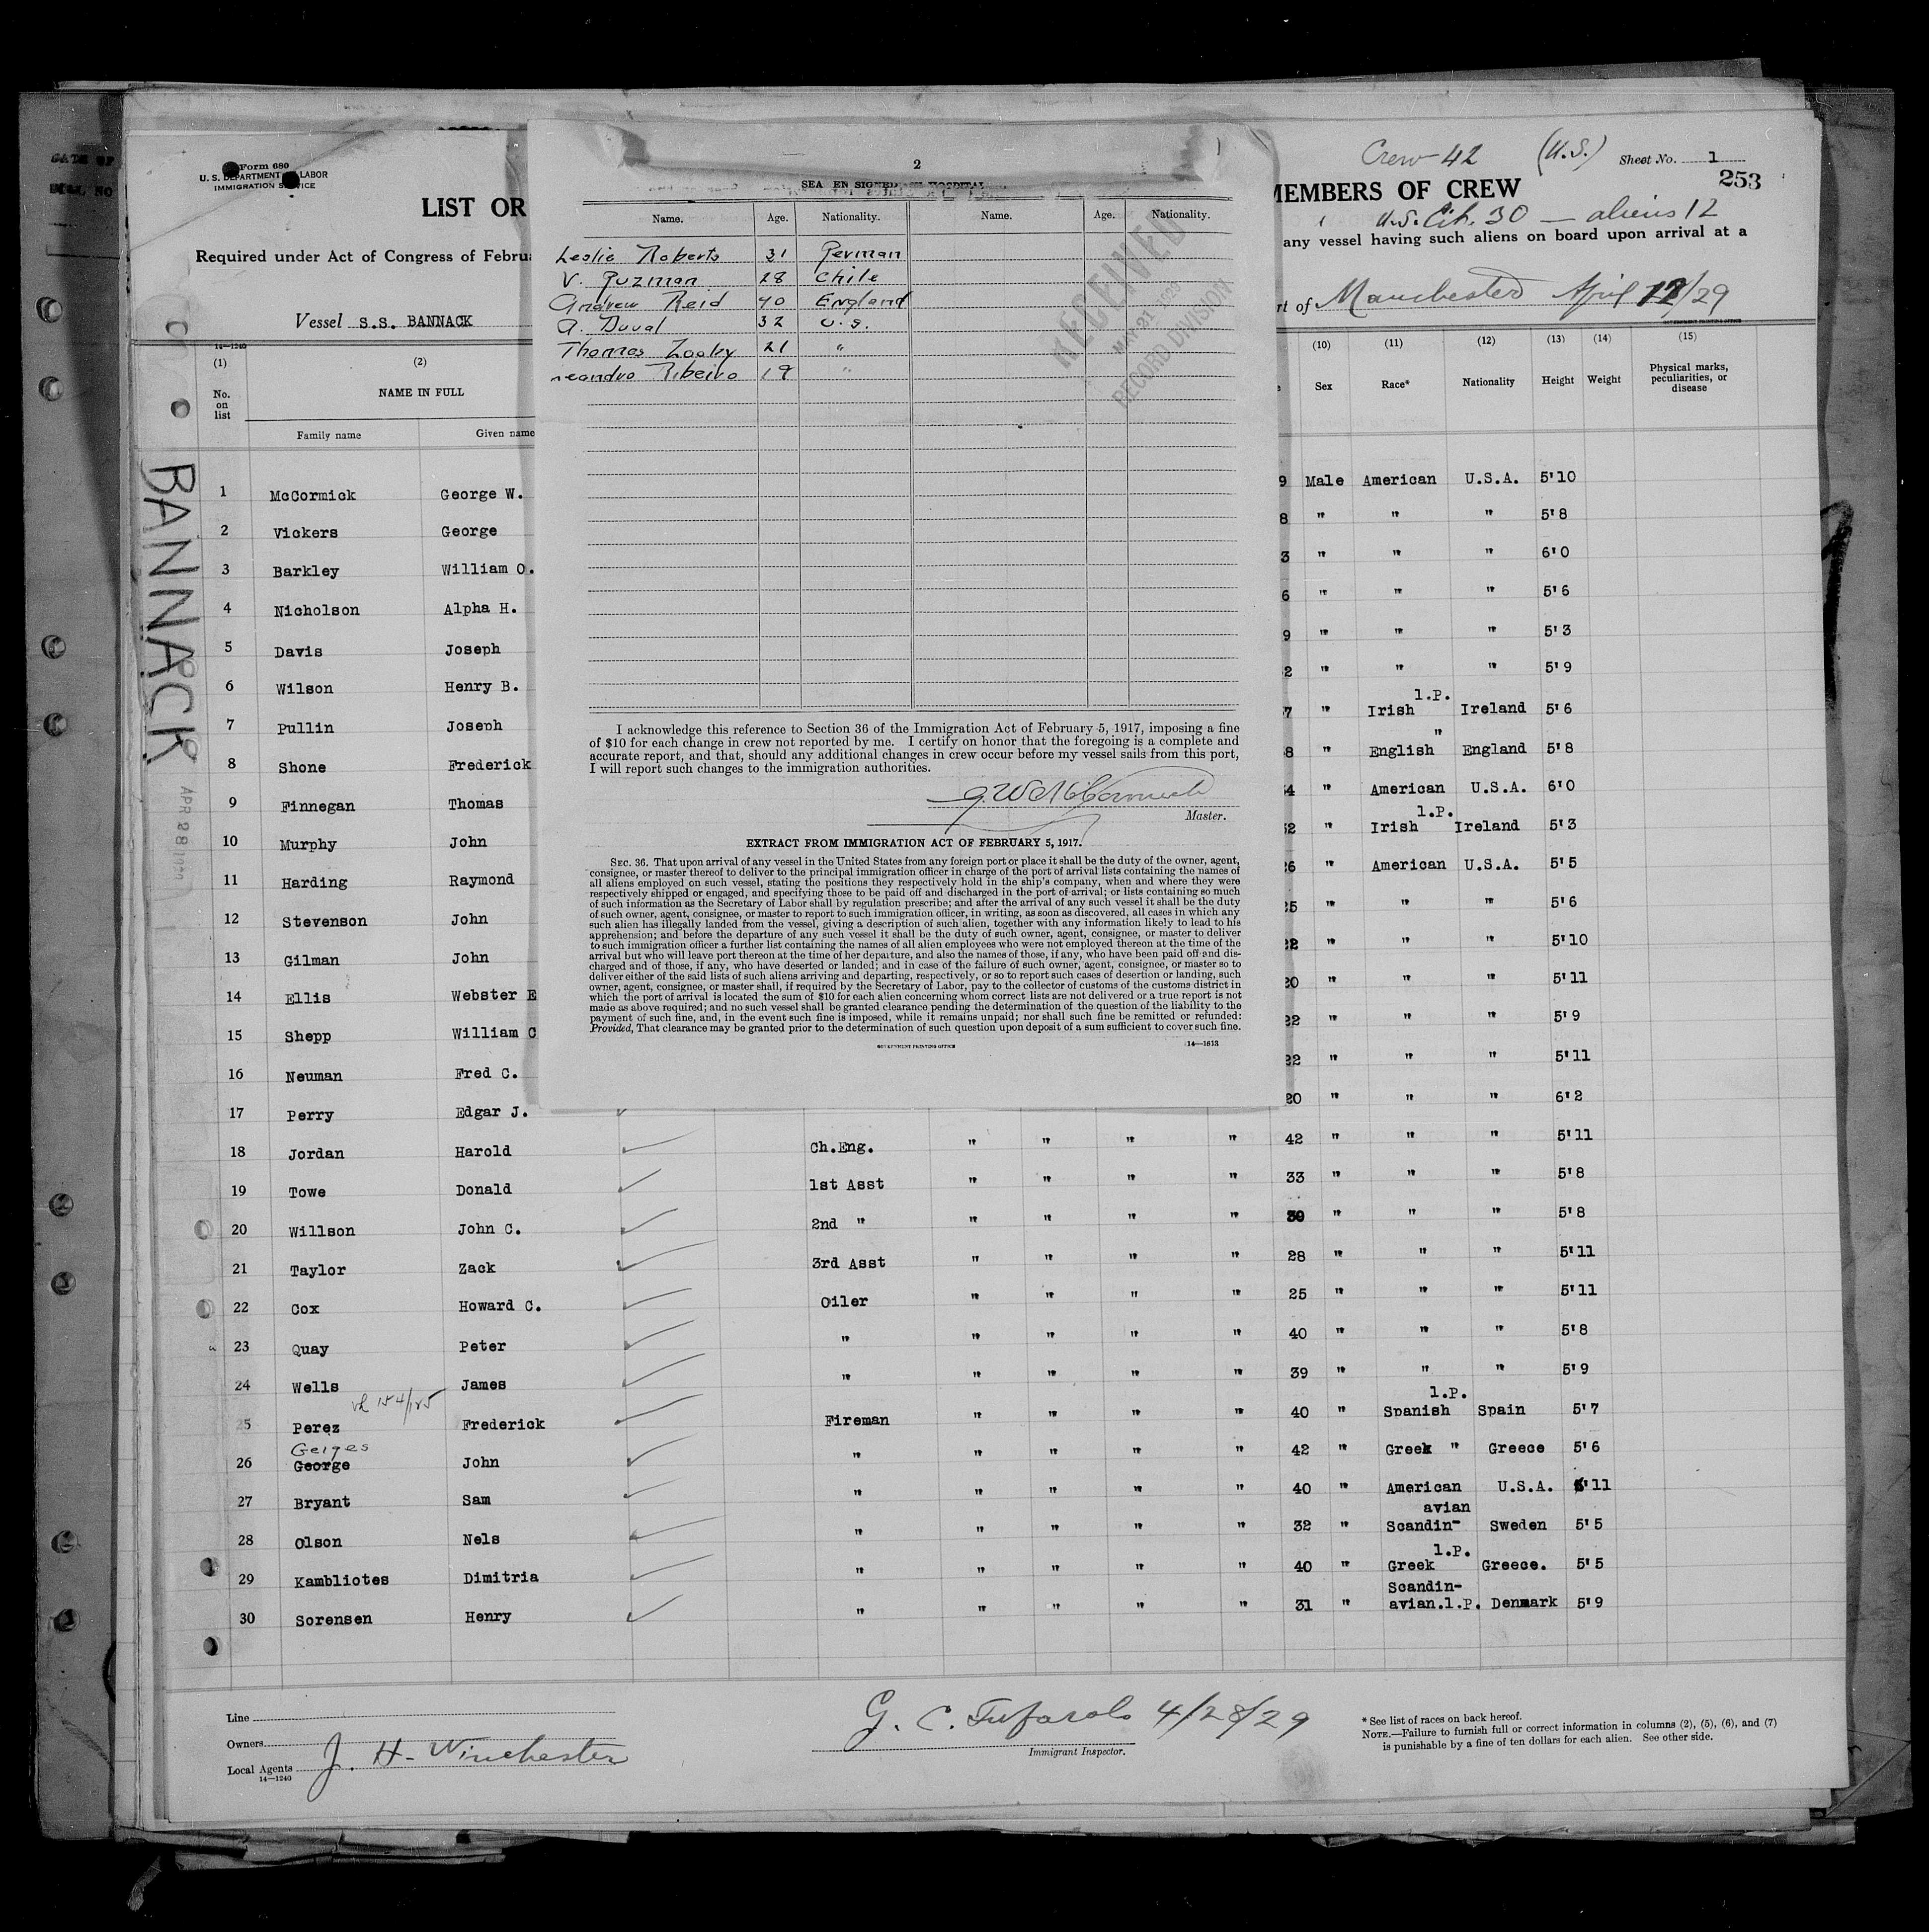 Form 680
U. S. DEPARTMENT LABOR
IMMIGRATION
LIST OR
Required under Act of Congress of
Vessel S.S. BANNACK
14—1240
(1) (2)
No. on list
NAME IN FULL
Family name Given name
BANNACK
2
SEA EN SIGNED
Name. Age. Nationality. Name. Age. Nationality.
Leslie Roberts 31
V. 28 Chile
Andrew Reid 40 England
A. Duval 32 U.S.
Thomas 21 "
Ribeiro 19 "
RECEIVED
MAY 31
RECORD DIVISION
I acknowledge this reference to Section 36 of the Immigration Act of February 5, 1917, imposing a fine
of $10 for each change in crew not reported by me. I certify on honor that the foregoing is a complete and
accurate report, and that, should any additional changes in crew occur before my vessel sails from this port,
I will report such changes to the immigration authorities.
G. W. McCormick
Master.
EXTRACT FROM IMMIGRATION ACT OF FEBRUARY 5, 1917.
SEC. 36. That upon arrival of any vessel in the United States from any foreign port or place it shall be the duty of the owner, agent,
consignee, or master thereof to deliver to the principal immigration officer in charge of the port of arrival lists containing the names of
all aliens employed on such vessel, stating the positions they respectively hold in the ship's company, when and where they were
respectively shipped or engaged, and specifying those to be paid off and discharged in the port of arrival; or lists containing so much
of such information as the Secretary of Labor shall by regulation prescribe; and after the arrival of any such vessel it shall be the duty
of such owner, agent, consignee, or master to report to such immigration officer, in writing, as soon as discovered, all cases in which any
such alien has illegally landed from the vessel, giving a description of such alien, together with any information likely to lead to his
apprehension; and before the departure of any such vessel it shall be the duty of such owner, agent, consignee, or master to deliver
to such immigration officer a further list containing the names of all alien employees who were not employed thereon at the time of the
arrival but who will leave port thereon at the time of her departure, and also the names of those, if any, who have been paid off and dis-
charged and of those, if any, who have deserted or landed; and in case of the failure of such owner, agent, consignee, or master so to
deliver either of the said lists of such aliens arriving and departing, respectively, or so to report such cases of desertion or landing, such
owner, agent, consignee, or master shall, if required by the Secretary of Labor, pay to the collector of customs of the customs district in
which the port of arrival is located the sum of $10 for each alien concerning whom correct lists are not delivered or a true report is not
made as above required; and no such vessel shall be granted clearance pending the determination of the question of the liability to the
payment of such fine, and, in the event such fine is imposed, while it remains unpaid; nor shall such fine be remitted or refunded:
Provided, That clearance may be granted prior to the determination of such question upon deposit of a sum sufficient to cover such fine.
GOVERNMENT PRINTING OFFICE 14—1613
Crew 42 (U.S.) Sheet No. 1
253
MEMBERS OF CREW
U.S. Cit. 30 — aliens 12
any vessel having such aliens on board upon arrival at a
rt of Manchester April 12/29
GOVERNMENT PRINTING OFFICE
(10) (11) (12) (13) (14) (15)
Sex Race* Nationality Height Weight Physical marks, peculiarities, or disease
1 McCormick George W. 9 Male American U.S.A. 5'10
2 Vickers George 8 " " " 5'8
3 Barkley William O. 3 " " " 6'0
4 Nicholson Alpha H. 6 " " " 5'6
5 Davis Joseph 9 " " " 5'3
6 Wilson Henry B. 2 " " " 5'9
7 Pullin Joseph 7 " Irish l.P. Ireland 5'6
8 Shone Frederick 8 " English " England 5'8
9 Finnegan Thomas 4 " American U.S.A. 6'0
10 Murphy John 2 " Irish l.P. Ireland 5'3
11 Harding Raymond 26 " American U.S.A. 5'5
12 Stevenson John 25 " " " 5'6
13 Gilman John 22 " " " 5'10
14 Ellis Webster E 20 " " " 5'11
15 Shepp William C 22 " " " 5'9
16 Neuman Fred C. 22 " " " 5'11
17 Perry Edgar J. 20 " " " 6'2
18 Jordan Harold Ch.Eng. " " " " 42 " " " 5'11
19 Towe Donald 1st Asst " " " " 33 " " " 5'8
20 Willson John C. 2nd " " " " " 30 " " " 5'8
21 Taylor Zack 3rd Asst " " " " 28 " " " 5'11
22 Cox Howard C. Oiler " " " " 25 " " " 5'11
23 Quay Peter " " " " " 40 " " " 5'8
24 Wells James " " " " " 39 " " " 5'9
25 Perez Frederick Fireman " " " " 40 " Spanish l.P. Spain 5'7
Geiges
26 George John " " " " " 42 " Greek " Greece 5'6
27 Bryant Sam " " " " " 40 " American U.S.A. 5'11
28 Olson Nels " " " " " 32 " Scandin- avian Sweden 5'5
29 Kambliotes Dimitria " " " " " 40 " Greek l.P. Greece. 5'5
30 Sorensen Henry " " " " " 31 " Scandin- avian.l.P. Denmark 5'9
Line
Owners
Local Agents J. H. Winchester
14—1240
G. C. Tufarolo 4/28/29
Immigrant Inspector.
* See list of races on back hereof.
NOTE.—Failure to furnish full or correct information in columns (2), (5), (6), and (7)
is punishable by a fine of ten dollars for each alien. See other side.